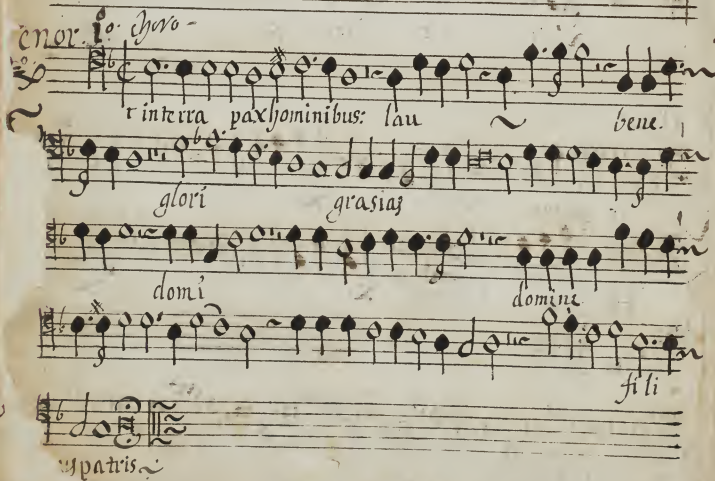 enor. 1º. choro.
t interra pax hominibus: lau bene.
glori grasias
domi domine
fili
us patris